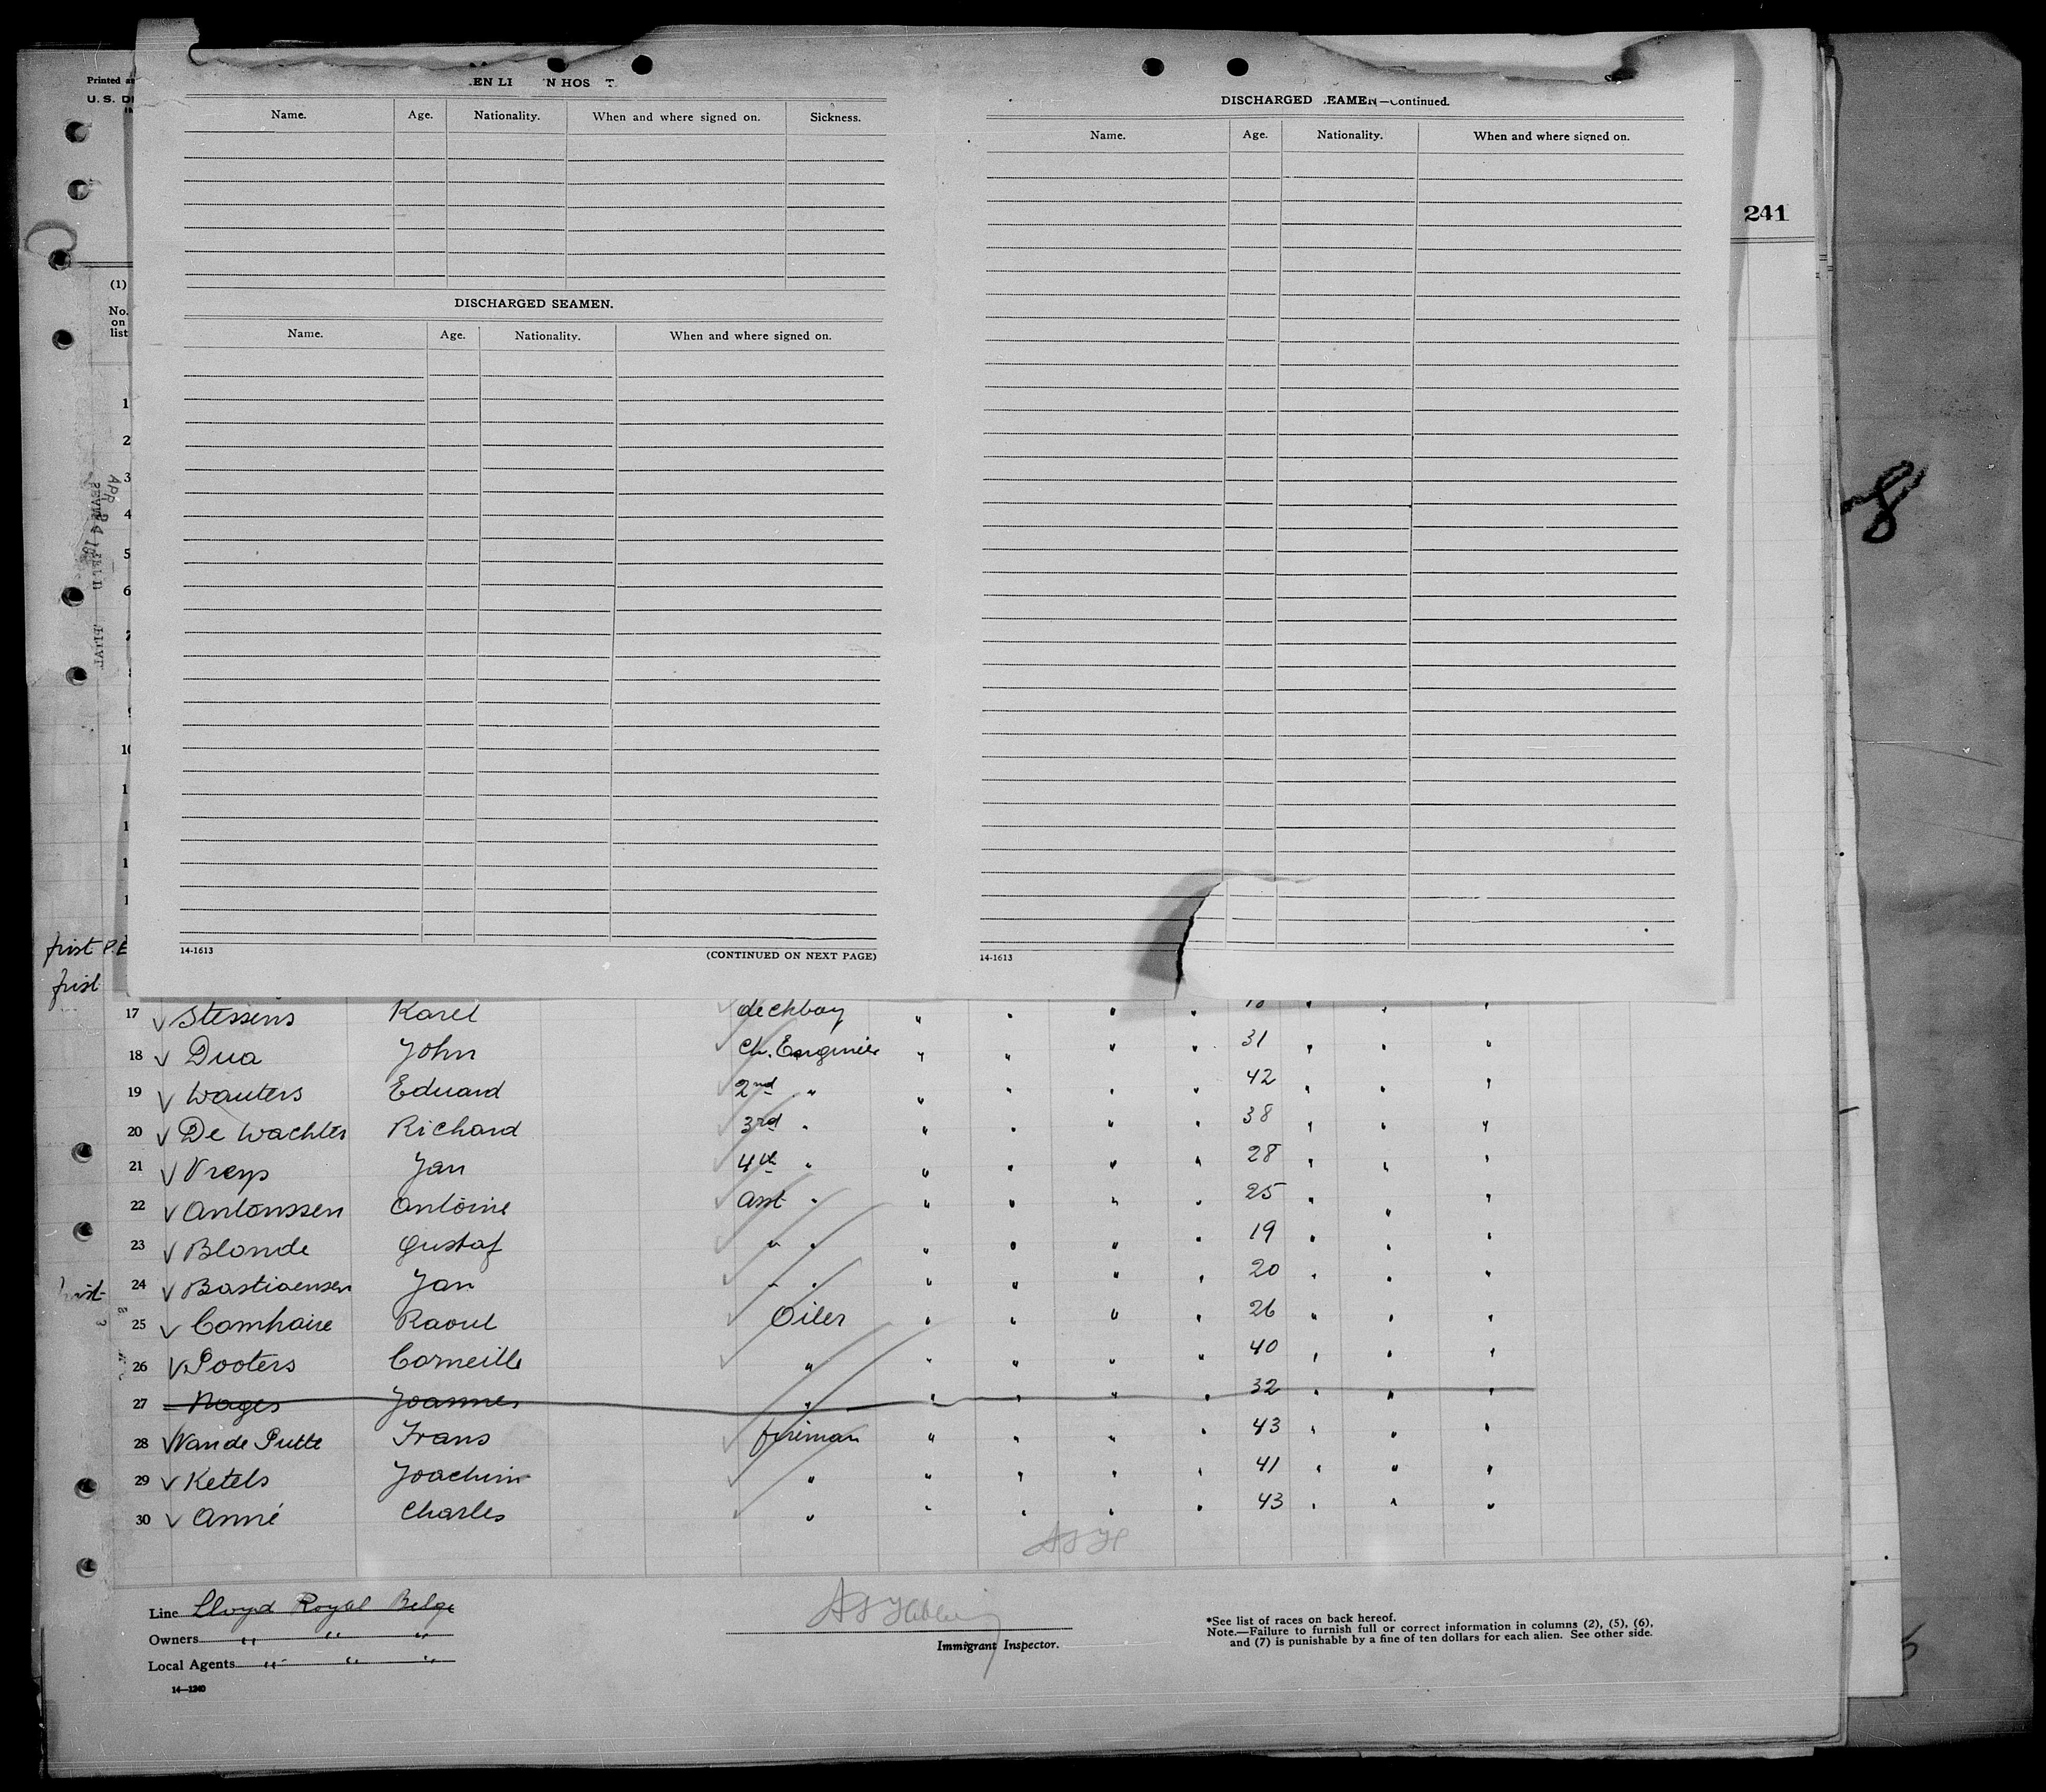 Printed
U. S. D
241
EN LI N HOS T
Name. Age. Nationality. When and where signed on. Sickness.
DISCHARGED SEAMEN.
Name. Age. Nationality. When and where signed on.
14-1613 (CONTINUED ON NEXT PAGE)
DISCHARGED EAMEN—Continued.
Name. Age. Nationality. When and where signed on.
14-1613
8
(1)
No.
on
list
1
2
3
4
5
6
10
first P.E
first
17 Stessens Karel deckboy
18 Dua John Ch. Engineer " " " " 31 " " "
19 Wauters Eduard 2nd " " " " " 42 " " "
20 De Wachter Richard 3rd " " " " " 38 " " "
21 Vreys Jan 4th " " " " " 28 " " "
22 Antonssen Antoine asst " " " " " 25 " " "
23 Blonde Gustaf " " " " " " 19 " " "
24 Bastiaensen Jan " " " " " " 20 " " "
25 Comhaire Raoul Oiler " " " " 26 " " "
26 Pooters Corneille " " " " " 40 " " "
27 Nages Joannes " " " " " 32 " " "
28 Van de Putte Frans fireman " " " " 43 " " "
29 Ketels Joachim " " " " " 41 " " "
30 Anné Charles " " " " " 43 " " "
Line Lloyd Royal Belge
Owners " " "
Local Agents " " "
14—1240
Immigrant Inspector.
*See list of races on back hereof.
Note.—Failure to furnish full or correct information in columns (2), (5), (6),
and (7) is punishable by a fine of ten dollars for each alien. See other side.